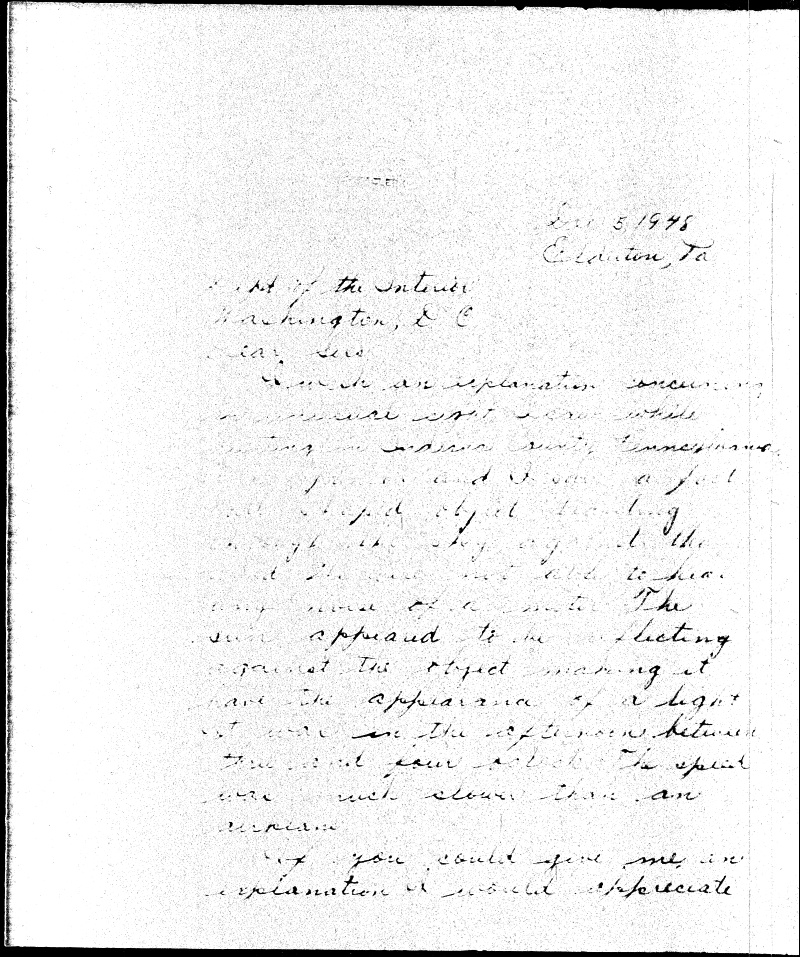 Dec 5, 1948
Elderton, Pa
Dept of the Interior
Washington, D C
Dear Sirs
I wish an explanation concerning
what I saw while
hunting in Indiana County, Pennsylvania
and I saw a foot
ball shaped object traveling
through the sky against the
wind. We were not able to hear
any noise of a motor. The
sun appeared to be reflecting
against the object making it
have the appearance of a light
It was in the afternoon between
three and four o'clock. The speed
was much slower than an
airplane
If you could give me an
explanation I would appreciate